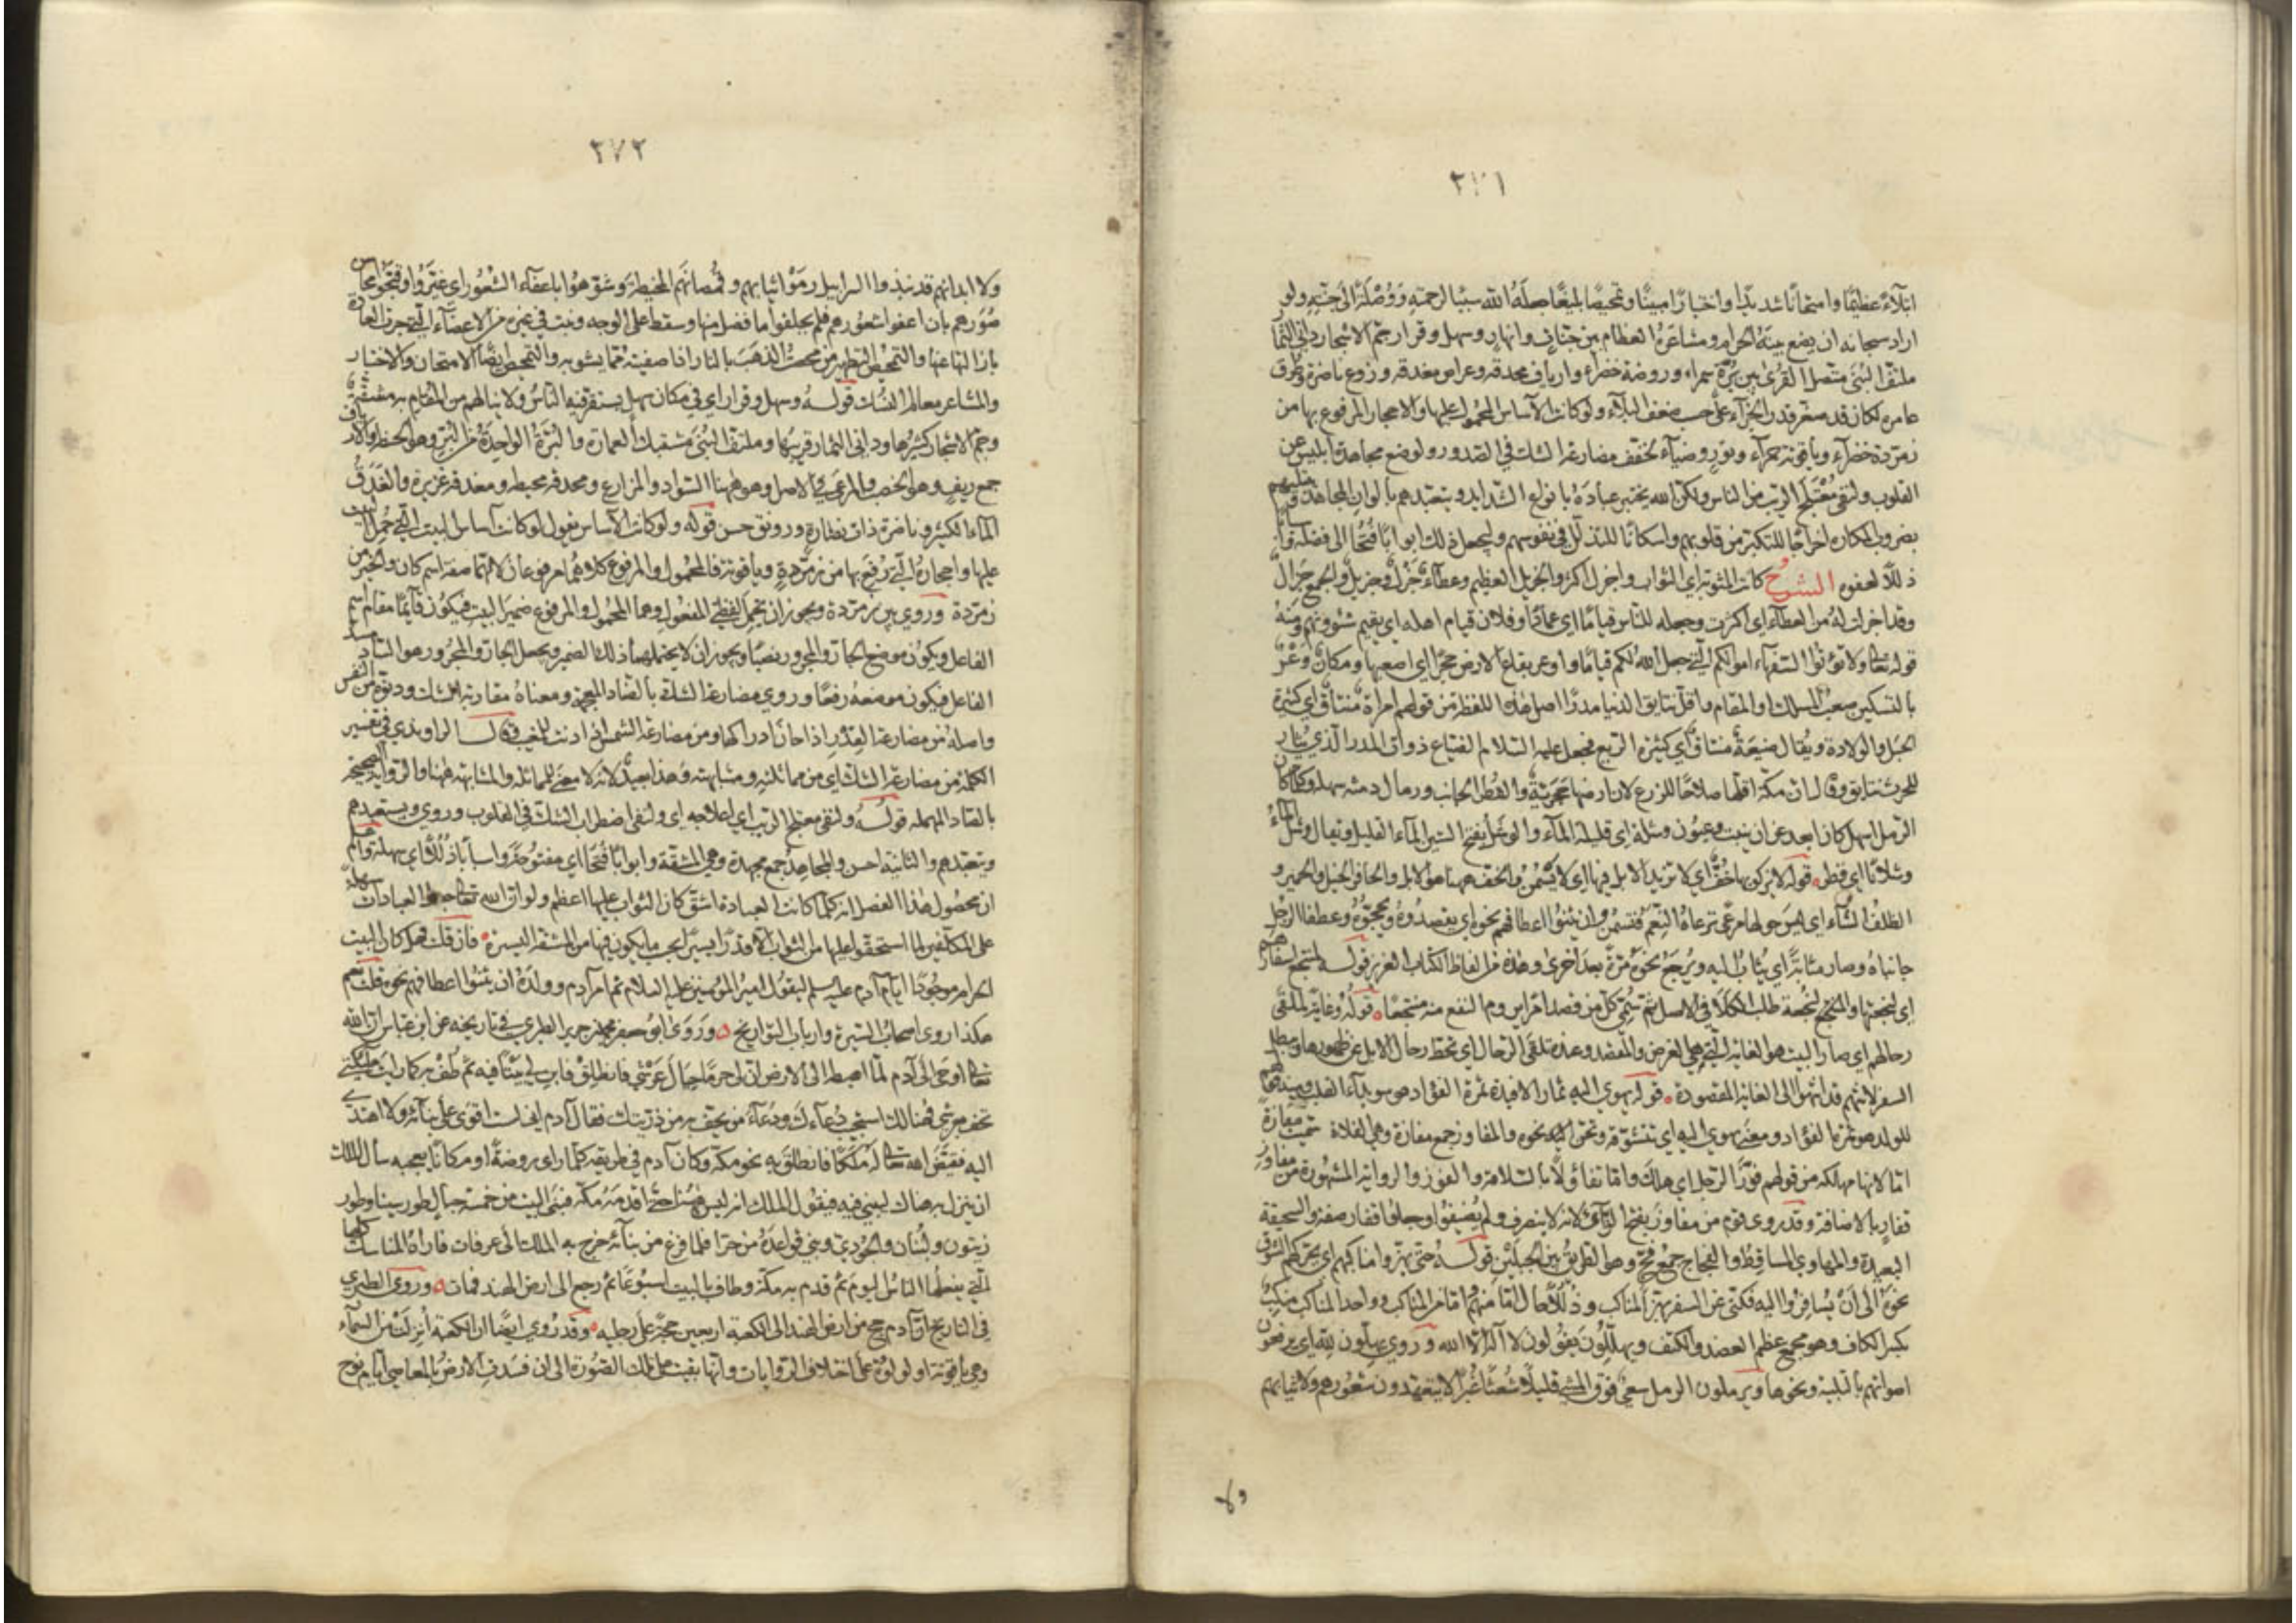 ٣٧١
ابتلاءً عظيمًا وامتحانًا شديدًا واختبارًا مبينًا وتمحيصًا بليغًا جعله الله سببًا لرحمته ووُصلةً الى جنته ولو
اراد سبحانه ان يضع بيته الحرام ومشاعره العظام بين جنات وانهار وسهل وقرار جمّ الاشجار داني الثمار
ملتفّ البنى متصل القرى بين برّة سمراء وروضة خضراء وارياف محدقة وعراص مغدقة وزروع ناضرة وطرق
عامرة لكان قد صغر قدر الجزاء على حسب ضعف البلاء ولو كانت الاساس المحمول عليها والاحجار المرفوع بها من
زمردة خضراء وياقوتة حمراء ونور وضياء لخفف مضارعة الشك في الصدور ولوضع مجاهدة ابليس عن
القلوب ولنفى معتلج الريب من الناس ولكن الله يختبر عباده بانواع الشدايد ويتعبدهم بالوان المجاهد ويبتليهم
بضروب المكاره اخراجًا للتكبر من قلوبهم واسكانًا للتذلل في نفوسهم وليجعل ذلك ابوابًا فتحًا الى فضله واسبابًا
ذللًا لعفوه الشرح كانت المثوبة اى الثواب واجزل اكثر والجزيل العظيم وعطاء جزل وجزيل والجمع جزال
وقد اجزلت له من العطاء اى اكثرت وجعله للناس قيامًا اى عمادًا وفلان قيام اهله اى يقيم شئونهم ومنه
قوله تعالى ولا تؤتوا السفهاء اموالكم التي جعل الله لكم قيامًا واوعر بقاع الارض حجرًا اى اصعبها ومكان وَعْر
بالتسكين صعب المسلك او المقام واقل نتايق الدنيا مدرًا اصل هذه اللفظة من قولهم امرأة منتاق اى كثيرة
الحبل والولادة ويقال ضيعة منتاق اى كثيرة الريع فجعل عليه السلام الضياع ذوات المدر الذي يثار
للحرث نتايق وقال ان مكة اقلها صلاحًا للزرع لان ارضها حجرية والقطر الجانب ورمال دمثة سهلة وكلما كان
الرمل اسهل كان ابعد عن ان ينبت وعيون وشلة اى قليلة الماء والوشل بفتح الشين الماء القليل ويقال وشل الماء
وشلانًا اى قطر قوله لا يزكو بها خفّ اى لا تزيد الابل فيها اى لا تسمن والخف ههنا هو الابل والحافر الخيل والحمير و
الظلف الشاء اى ليس حولها مرعى ترعاه النعم فتسمن وان يثنوا اعطافهم نحوه اى يقصدوه ويحجّوه وعطفا الرجل
جانباه وصار مثابة اى يثاب اليه ويرجع نحوه مرّة بعد اخرى وهذه من الفاظ الكتاب العزيز قوله لمنتجع اسفارهم
اى لنجعتها والمنتجع لنجعة طلب الكلاء في الاصل ثم سمّي كل من قصد امرًا يروم النفع منه منتجعًا قوله وغاية لملقى
رحالهم اى صار البيت هو الغاية التي هي الغرض والمقصد وعنده تلقى الرحال اى تحط رحال الابل عن ظهورها ويبطل
السفر لانهم قد انتهوا الى الغاية المقصودة قوله تهوي اليه ثمار الافئدة ثمرة الفؤاد هو سويداء القلب ومنه قولهم
للولد هو ثمرة الفؤاد ومعنى تهوي اليه اى تتشوقه وتحن اليه نحوه والمفاوز جمع مفازة وهي الفلاة سميت مفازة
امّا لانها مهلكة من قولهم فوّز الرجل اى هلك وامّا تفاؤلًا بالسلامة والفوز والرواية المشهورة من مفاوز
قفار بالاضافة وقد روى قوم من مفاوز بفتح الزاي لانه لا ينصرف ولم يضيفوا وجعلوا قفار صفة والسحيقة
البعيدة والمهاوي المساقط والفجاج جمع فج وهو الطريق بين الجبلين قوله حتى يهزوا مناكبهم اى يحركهم الشوق
نحوه الى ان يسافروا اليه فكنى عن السفر بهز المناكب وذللًا حال امّا منهم وامّا من المناكب وواحد المناكب منكب
بكسر الكاف وهو مجمع عظم العضد والكتف ويهلّلون يقولون لا اله الا الله وروي يهلون لله اى يرفعون
اصواتهم بالتلبية ونحوها ويرملون الرمل سعي فوق المشي قليلًا شعثًا غبرًا لا يتعهدون شعورهم ولا ثيابهم
ولا
٣٧٢
ولا ابدانهم قد نبذوا السرابيل رموا ثيابهم وقمصانهم المخيطة وشوّهوا باعفاء الشعور اى غيّروا وقبّحوا محاسن
صورهم بان اعفوا شعورهم فلم يحلقوا ما فضل منها وسقط على الوجه ونبت في غيره من الاعضاء التي جرت العادة
بازالتها عنها والتمحيص التطهير من محصت الذهب بالنار اذا صفيته مما يشوبه والتمحيص ايضًا الامتحان والاختبار
والمشاعر معالم النسك قوله وسهل وقرار اى في مكان سهل يستقر فيه الناس ولا ينالهم من المقام به مشقة
وجمّ الاشجار كثيرها وداني الثمار قريبها وملتف البنى مشتبك العمارة والبرّة الواحدة من البرّ وهو الحنطة والارياف
جمع ريف وهو الخصب والمرعى في الاصل وهو ههنا السواد والمزارع ومحدقة محيطة ومغدقة غزيرة والغدق
الماء الكثير وناضرة ذات نضارة ورونق حسن قوله ولو كانت الاساس يقول لو كانت اساس البيت التي حمل البيت
عليها واحجاره التي رفع بها من زمردة وياقوتة فالمحمول والمرفوع كلاهما مرفوعان لانهما صفة اسم كان والخبر من
زمردة وروي بين زمردة ويجوز ان تحمل لفظتي المفعول وهما المحمول والمرفوع ضمير البيت فيكون قائمًا مقام اسم
الفاعل ويكون موضع الجار والمجرور نصبًا ويجوز ان لا يحتملهما ذلك الضمير ويجعل الجار والمجرور هو الساد مسدّ
الفاعل فيكون موضعه رفعًا وروي مضارعة الشك بالضاد المعجمة ومعناه مقارنة الشك ودنوّه من النفس
واصله من مضارعة القدر اذا حان ادراكها ومن مضارعة الشمس اذا دنت للمغيب وقال الراوندي في تفسير
الكلمة من مضارعة الشك اى من مماثلته ومشابهته وهذا بعيد لانه لا معنى للمماثلة والمشابهة ههنا والرواية الصحيحة
بالصاد المهملة قوله ولنفى معتلج الريب اى اعتلاجه اى ولنفى اضطراب الشك في القلوب وروي ويستعبدهم
ويتعبدهم والثانية احسن والمجاهد جمع مجهدة وهي المشقة وابوابًا فتحًا اى مفتوحة واسبابًا ذللًا اى سهلة واعلم
ان محصول هذا الفصل انه كلما كانت العبادة اشق كان الثواب عليها اعظم ولو ان الله تعالى جعل العبادات سهلة
على المكلفين لما استحقوا عليها من الثواب الا قدرًا يسيرًا بحسب ما يكون فيها من المشقة اليسيرة فان قلت فهل كان البيت
الحرام موجودًا ايام آدم عليه السلام ليقول امير المؤمنين عليه السلام ثم امر آدم وولده ان يثنوا اعطافهم نحوه قلت نعم
هكذا روى اصحاب السيرة وارباب التواريخ وروى ابو جعفر محمد بن جرير الطبري في تاريخه عن ابن عباس ان الله
تعالى اوحى الى آدم لما اهبطه الى الارض ان لي حرمًا حيال عرشي فانطلق فابن لي بيتًا فيه ثم طف به كما رايت ملائكتي
تحف بعرشي فهنالك استجيب دعاءك ودعاء من يحف به من ذريتك فقال آدم اني لست اقوى على بنائه ولا اهتدي
اليه فقيض الله تعالى له ملكًا فانطلق به نحو مكة وكان آدم في طريقه كلما راى روضة او مكانًا يعجبه سأل الملك
ان ينزل به هناك ليبني فيه فيقول الملك انه ليس ههنا حتى اقدمه مكة فبنى البيت من خمسة جبال طور سينا وطور
زيتون ولبنان والجودي وبنى قواعده من حرا فلما فرغ من بنائه خرج به الملك الى عرفات فاراه المناسك كلها
التي يفعلها الناس اليوم ثم قدم به مكة وطاف بالبيت اسبوعًا ثم رجع الى ارض الهند فمات وروى الطبري
في التاريخ ان آدم حج من ارض الهند الى الكعبة اربعين حجة على رجليه وقد روي ايضًا ان الكعبة انزلت من السماء
وهي ياقوتة او لؤلؤة على اختلاف الروايات وانها بقيت على تلك الصورة الى ان فسدت الارض بالمعاصي ايام نوح